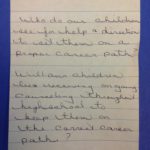 Who do our children
see for help & direction
to set them on a
proper career path?
Will our children
be receiving on going
counseling throughout
highschool to
keep them on
the correct career
path?